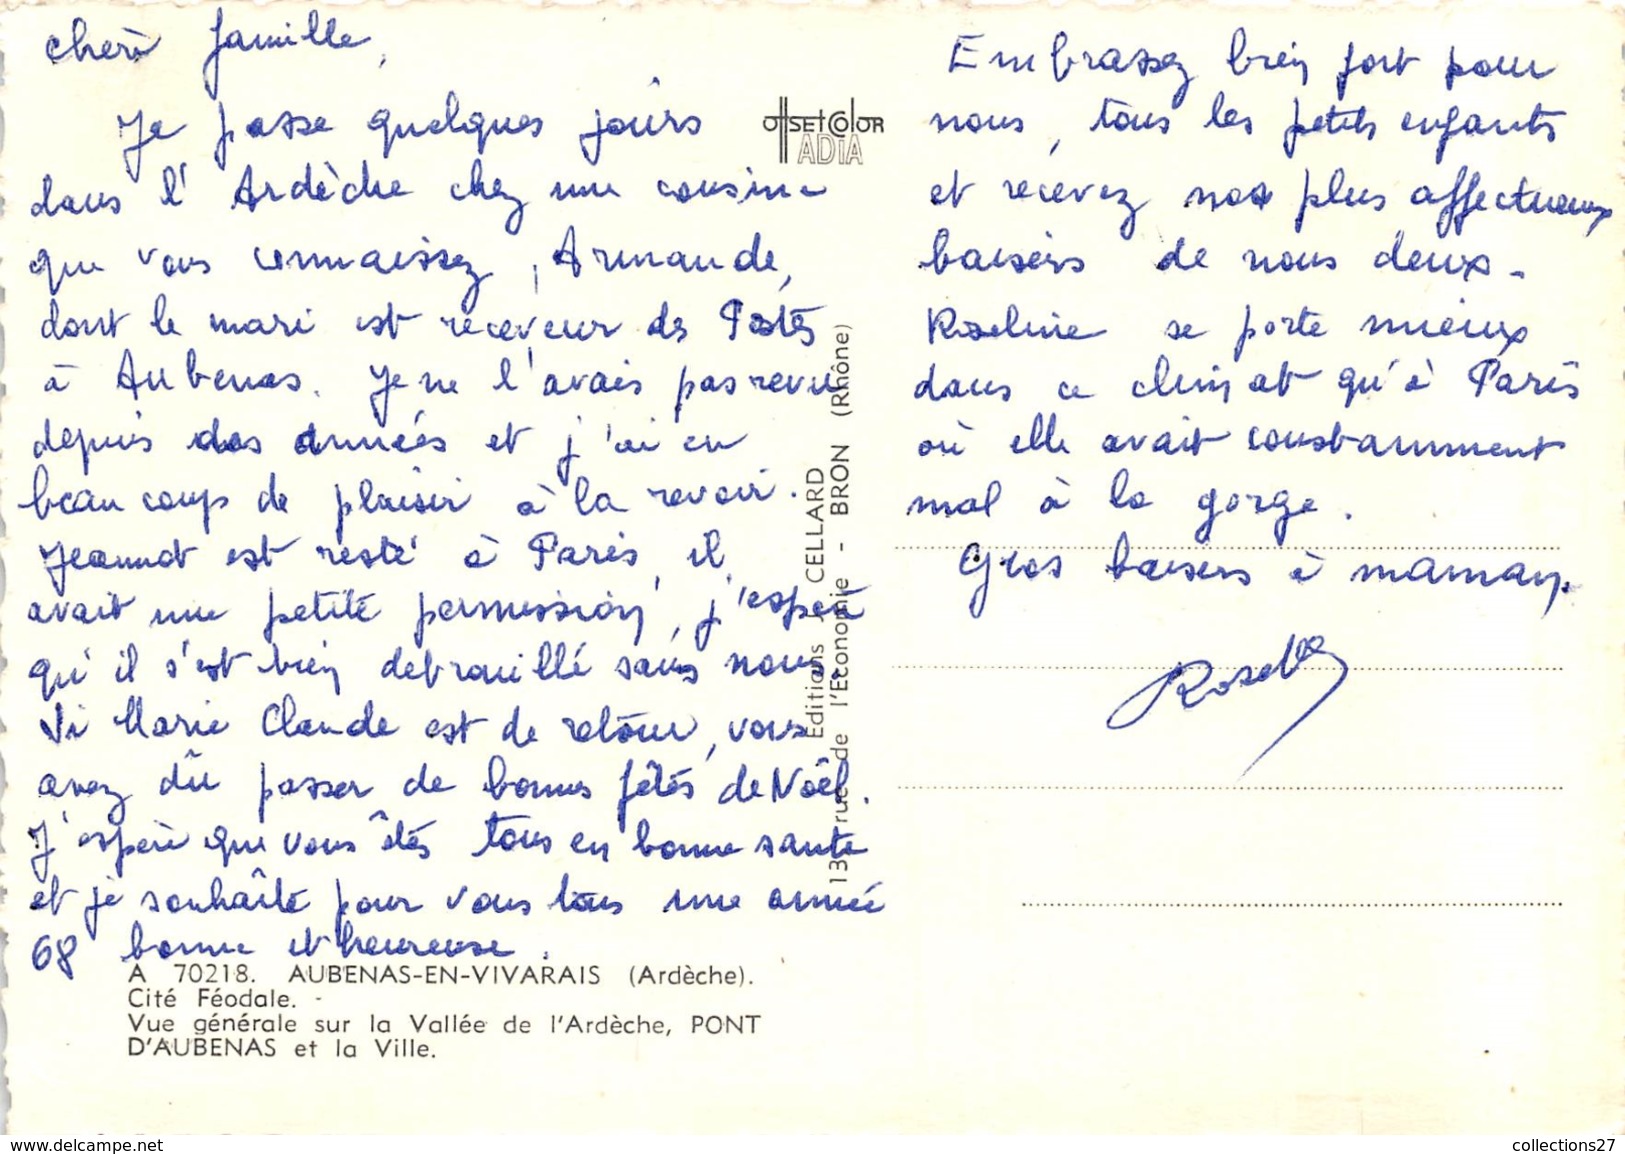 Chère famille,
Je passe quelques jours
dans l'Ardèche chez une cousine
que vous connaissez, Armande,
dont le mari est receveur des Postes
à Aubenas. Je ne l'avais pas revue
depuis des années et j'ai eu
beaucoup de plaisir à la revoir.
Jeannot est resté à Paris, il
avait une petite permission, j'espère
qu'il s'est bien debrouillé sans nous.
Si Marie Claude est de retour, vous
avez dû passer de bonnes fêtes de Noël.
J'espère que vous êtes tous en bonne santé
et je souhaite pour vous tous une année
68 bonne et heureuse.
A 70218. AUBENAS-EN-VIVARAIS (Ardèche).
Cité Féodale. -
Vue générale sur la Vallée de l'Ardèche, PONT
D'AUBENAS et la Ville.
OffSEt COlOR
ADIA
Editions CELLARD
13, rue de l'Economie - BRON (Rhône)
Embrassez bien fort pour
nous, tous les petits enfants
et recevez nos plus affectueux
baisers de nous deux.
Roseline se porte mieux
dans ce climat qu'à Paris
où elle avait constamment
mal à la gorge.
Gros baisers à maman.
www.delcampe.net
collections27